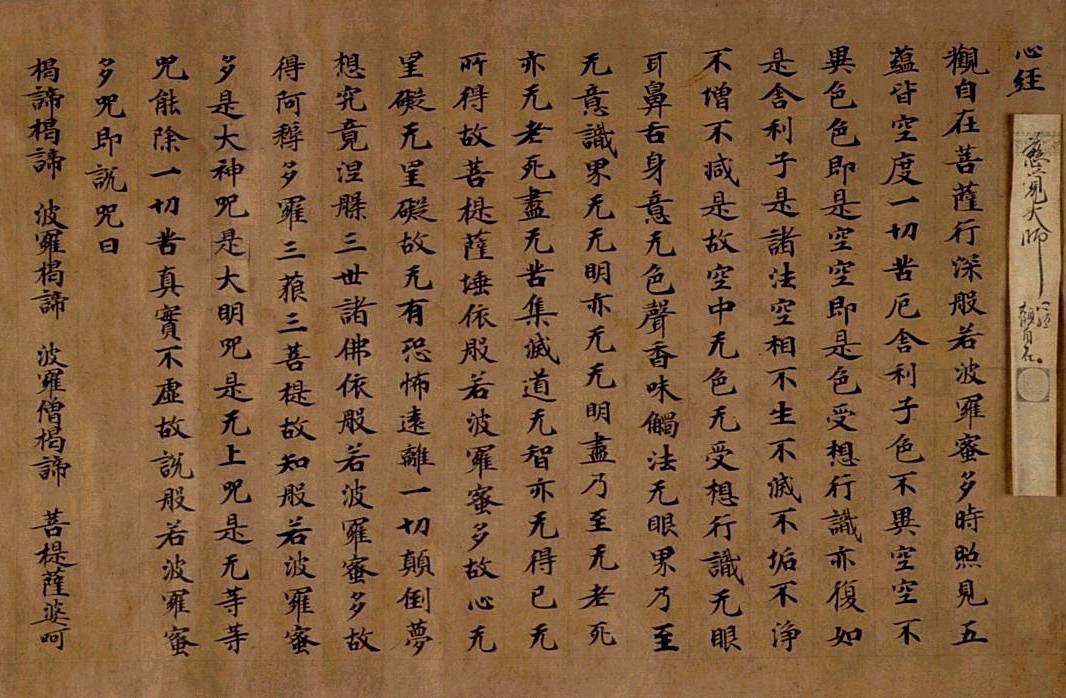 心経
觀自在菩薩行深般若波羅蜜多時照見五
蘊皆空度一切苦厄舍利子色不異空空不
異色色即是空空即是色受想行識亦復如
是舍利子是諸法空相不生不滅不垢不淨
不增不減是故空中无色无受想行識无眼
耳鼻舌身意无色聲香味觸法无眼界乃至
无意識界无无明亦无无明盡乃至无老死
亦无老死盡无苦集滅道无智亦无得已无
所得故菩提薩埵依般若波羅蜜多故心无
罣礙无罣礙故无有恐怖遠離一切顛倒夢
想究竟涅槃三世諸佛依般若波羅蜜多故
得阿耨多羅三藐三菩提故知般若波羅蜜
多是大神咒是大明咒是无上咒是无等等
咒能除一切苦真實不虛故說般若波羅蜜
多咒即說咒曰
揭諦揭諦 波羅揭諦 波羅僧揭諦 菩提薩婆呵
慈覚大師
心経
観自在